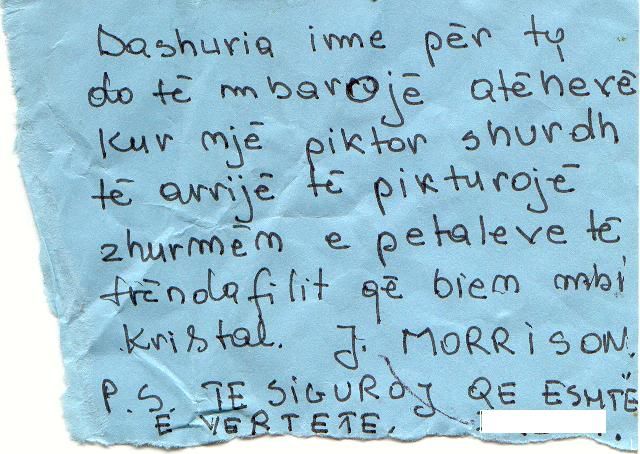 Dashuria ime për ty
do të mbarojë atëherë
Kur një piktor shurdh
të arrijë të pikturojë
zhurmën e petaleve të
trëndafilit që biem mbi
Kristal. J. MORRISON.
P.S. TE SIGUROJ QE ESHTË
E VERTETE.